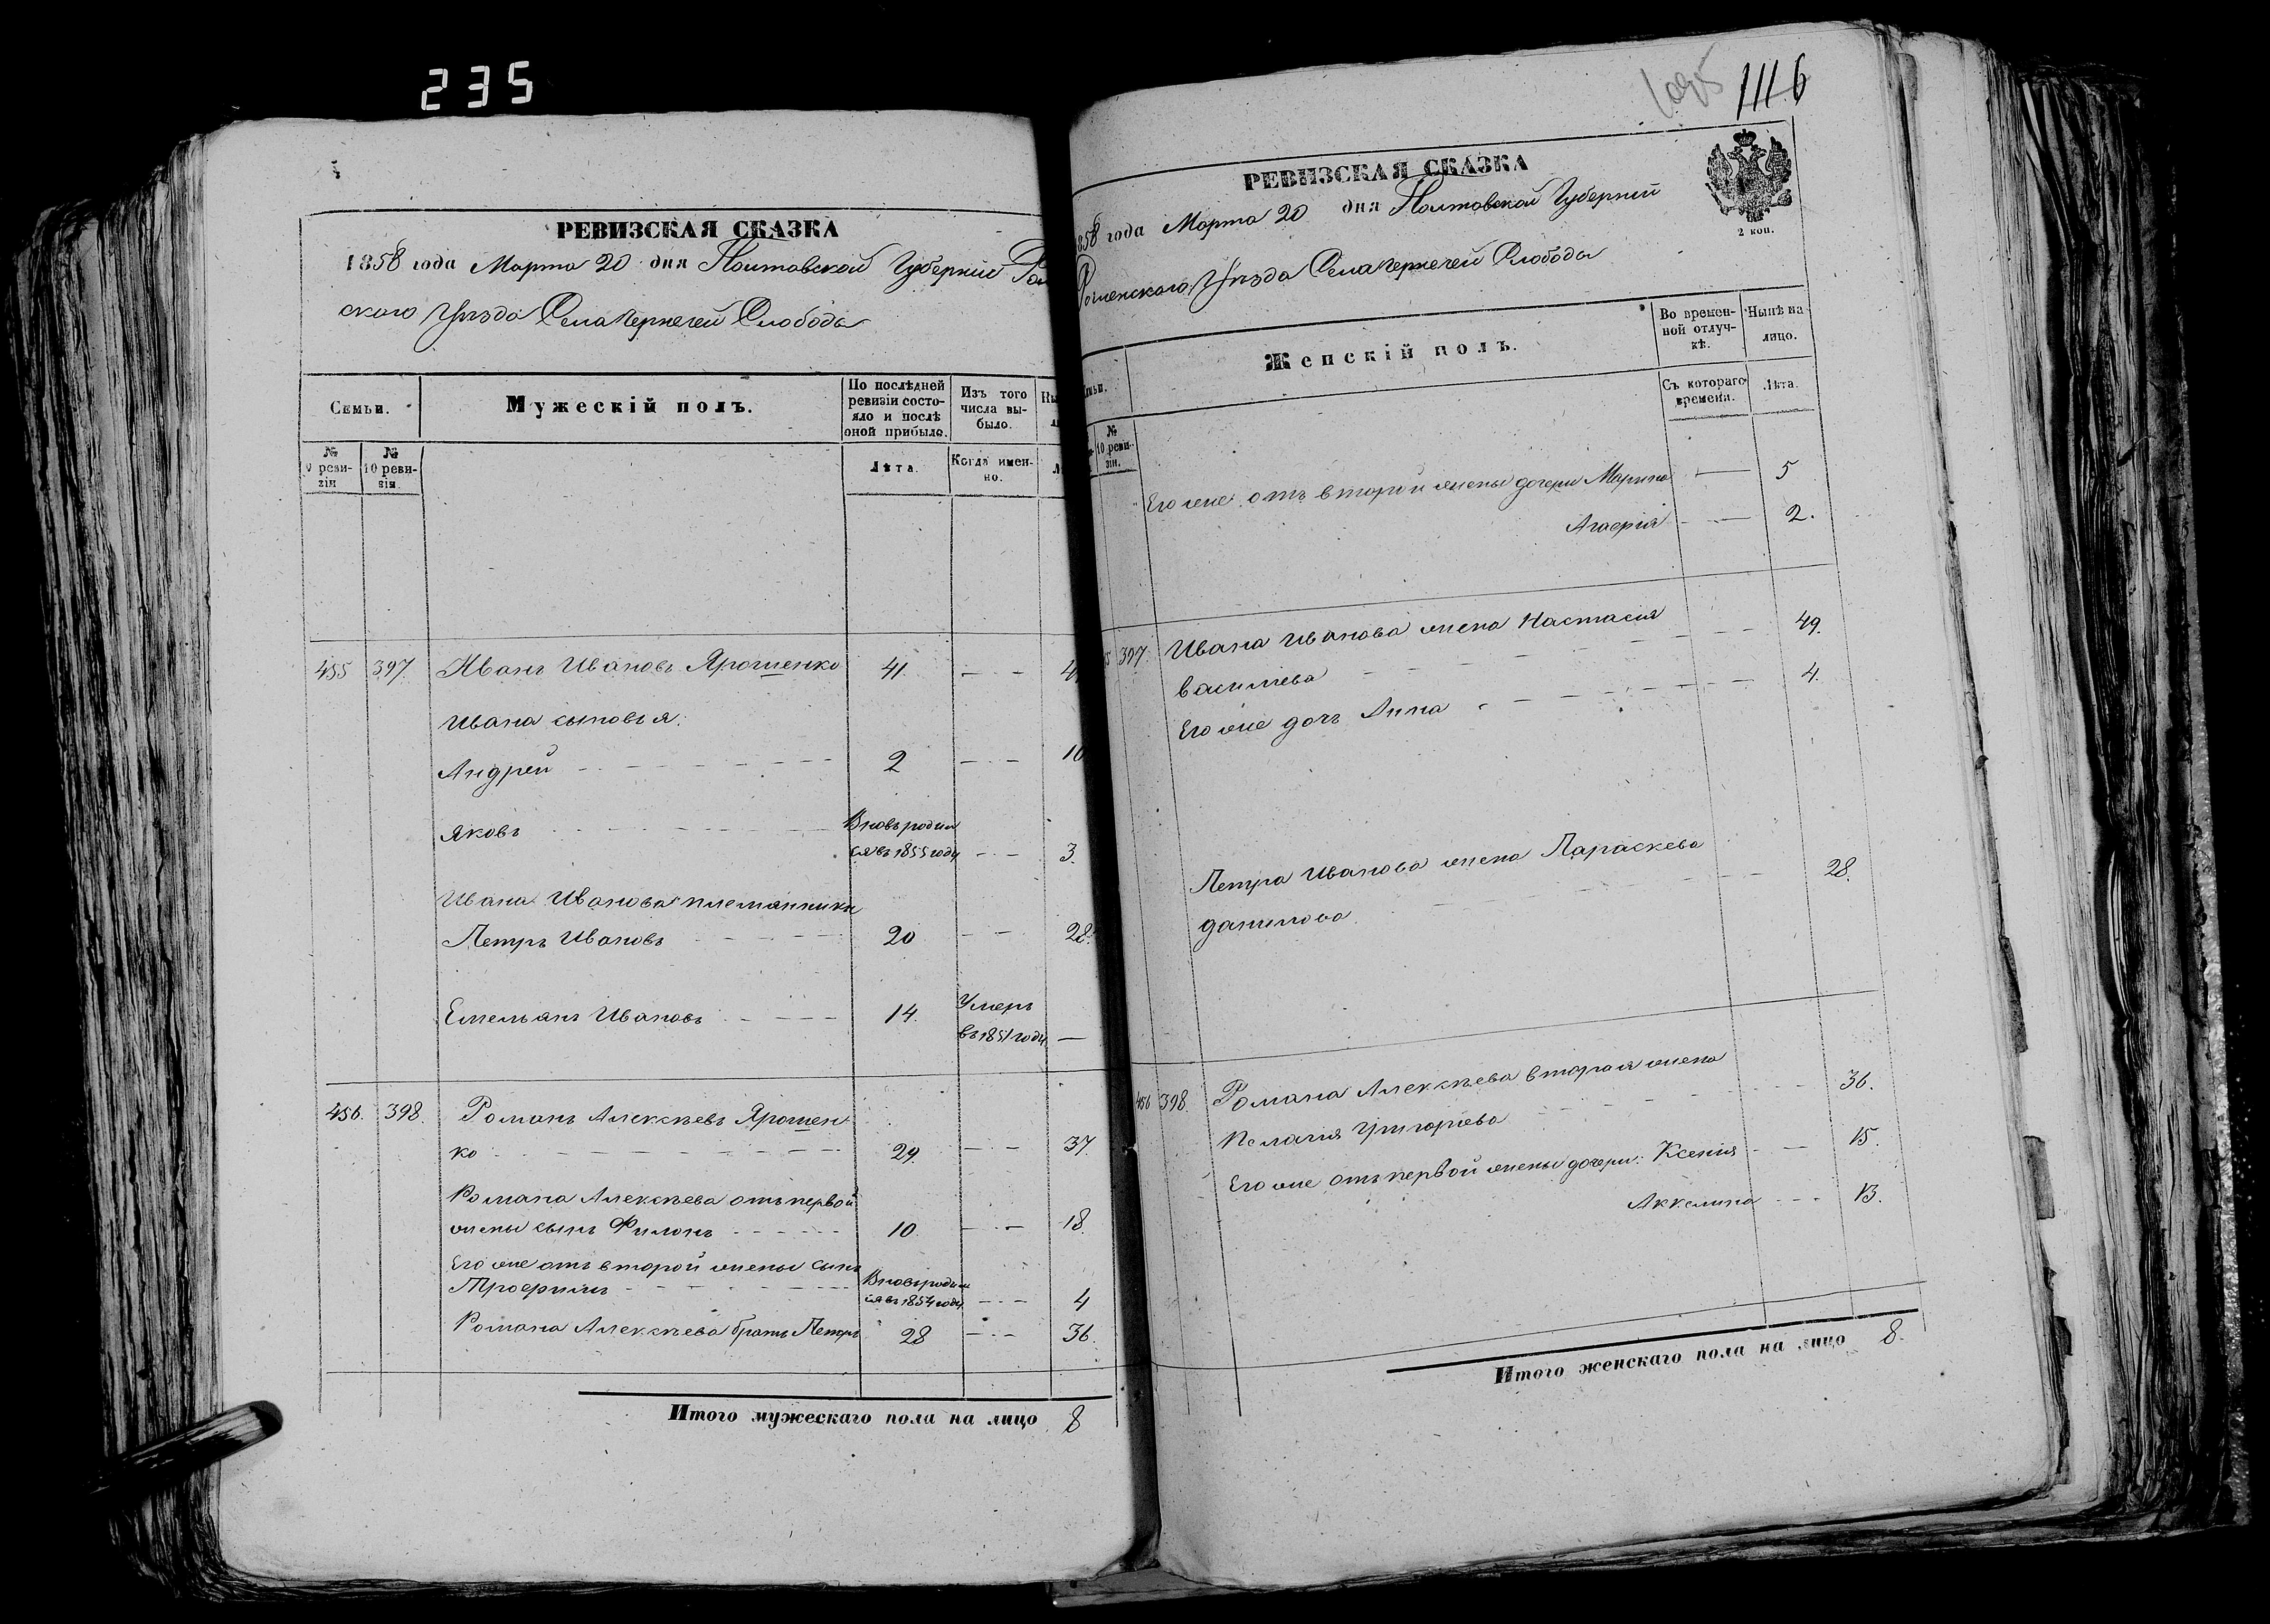 235
РЕВИЗСКАЯ СКАЗКА
1858 года Марта 20 дня Полтавской Губерніи Ро
скаго Уѣзда Села Чернечей Слободы
Семьи.
Мужескій полъ.
По послѣдней ревизіи состояло и послѣ оной прибыло.
Изъ того числа выбыло.
№ 9 ревизіи
№ 10 ревизіи
Лѣта.
Когда именно.
455 397. Иванъ Ивановъ Ярошенко 41.
Ивана сыновья:
Андрей 2 10
Яковъ Вновь родил
ся въ 1855 году 3.
Ивана Иванова племянники
Петръ Ивановъ 20 28.
Емельянъ Ивановъ 14. Умеръ
въ 1851 году
456. 398. Романъ Алексѣевъ Ярошен
ко 29. 37.
Романа Алексѣева отъ первой
жены сынъ Филонъ 10. 18.
Его же отъ второй жены сынъ
Трофимъ Вновь родил
ся въ 1854 году 4
Романа Алексѣева братъ Петръ 28 36.
Итого мужескаго пола на лицо 8
1116
РЕВИЗСКАЯ СКАЗКА
1858 года Марта 20 дня Полтавской Губерніи
Роменскаго Уѣзда Села Чернечей Слободы
2 коп.
Женскій полъ.
Во временной отлучкѣ.
Нынѣ на лицо.
Съ котораго времени.
Лѣта.
№ 10 ревизіи.
Его же отъ второй жены дочери Марина 5
Агафія 2.
397. Ивана Иванова жена Настасія
Василіева 49.
Его же дочь Анна 4.
Петра Иванова жена Параскева
Данилова 28.
456 398. Романа Алексѣева вторая жена
Пелагія Григоріева 36.
Его же отъ первой жены дочери: Ксенія 15.
Аккелина 13.
Итого женскаго пола на лицо 8.